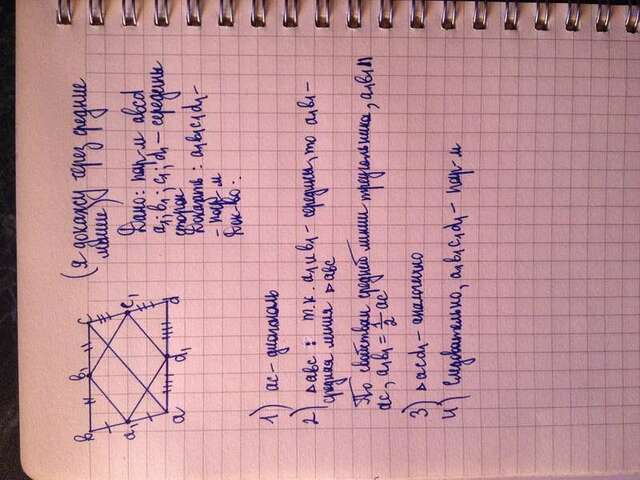 в в₁ с
а₁ с₁
а d₁ d
(я докажу через средние
линии)
Дано: пар-м авсd
а₁; в₁; с₁; d₁ – середины
сторон
Доказать: а₁в₁с₁d₁ –
- пар-м
Док-во:
1) ас – диагональ
2) △авс: т.к. а₁ и в₁ – середины, то а₁в₁ –
средняя линия △авс
По свойствам средней линии треугольника, а₁в₁ ||
ас, а₁в₁ = 1/2 ас
3) △асd₁ – аналогично
4) Следовательно, а₁в₁с₁d₁ – пар-м